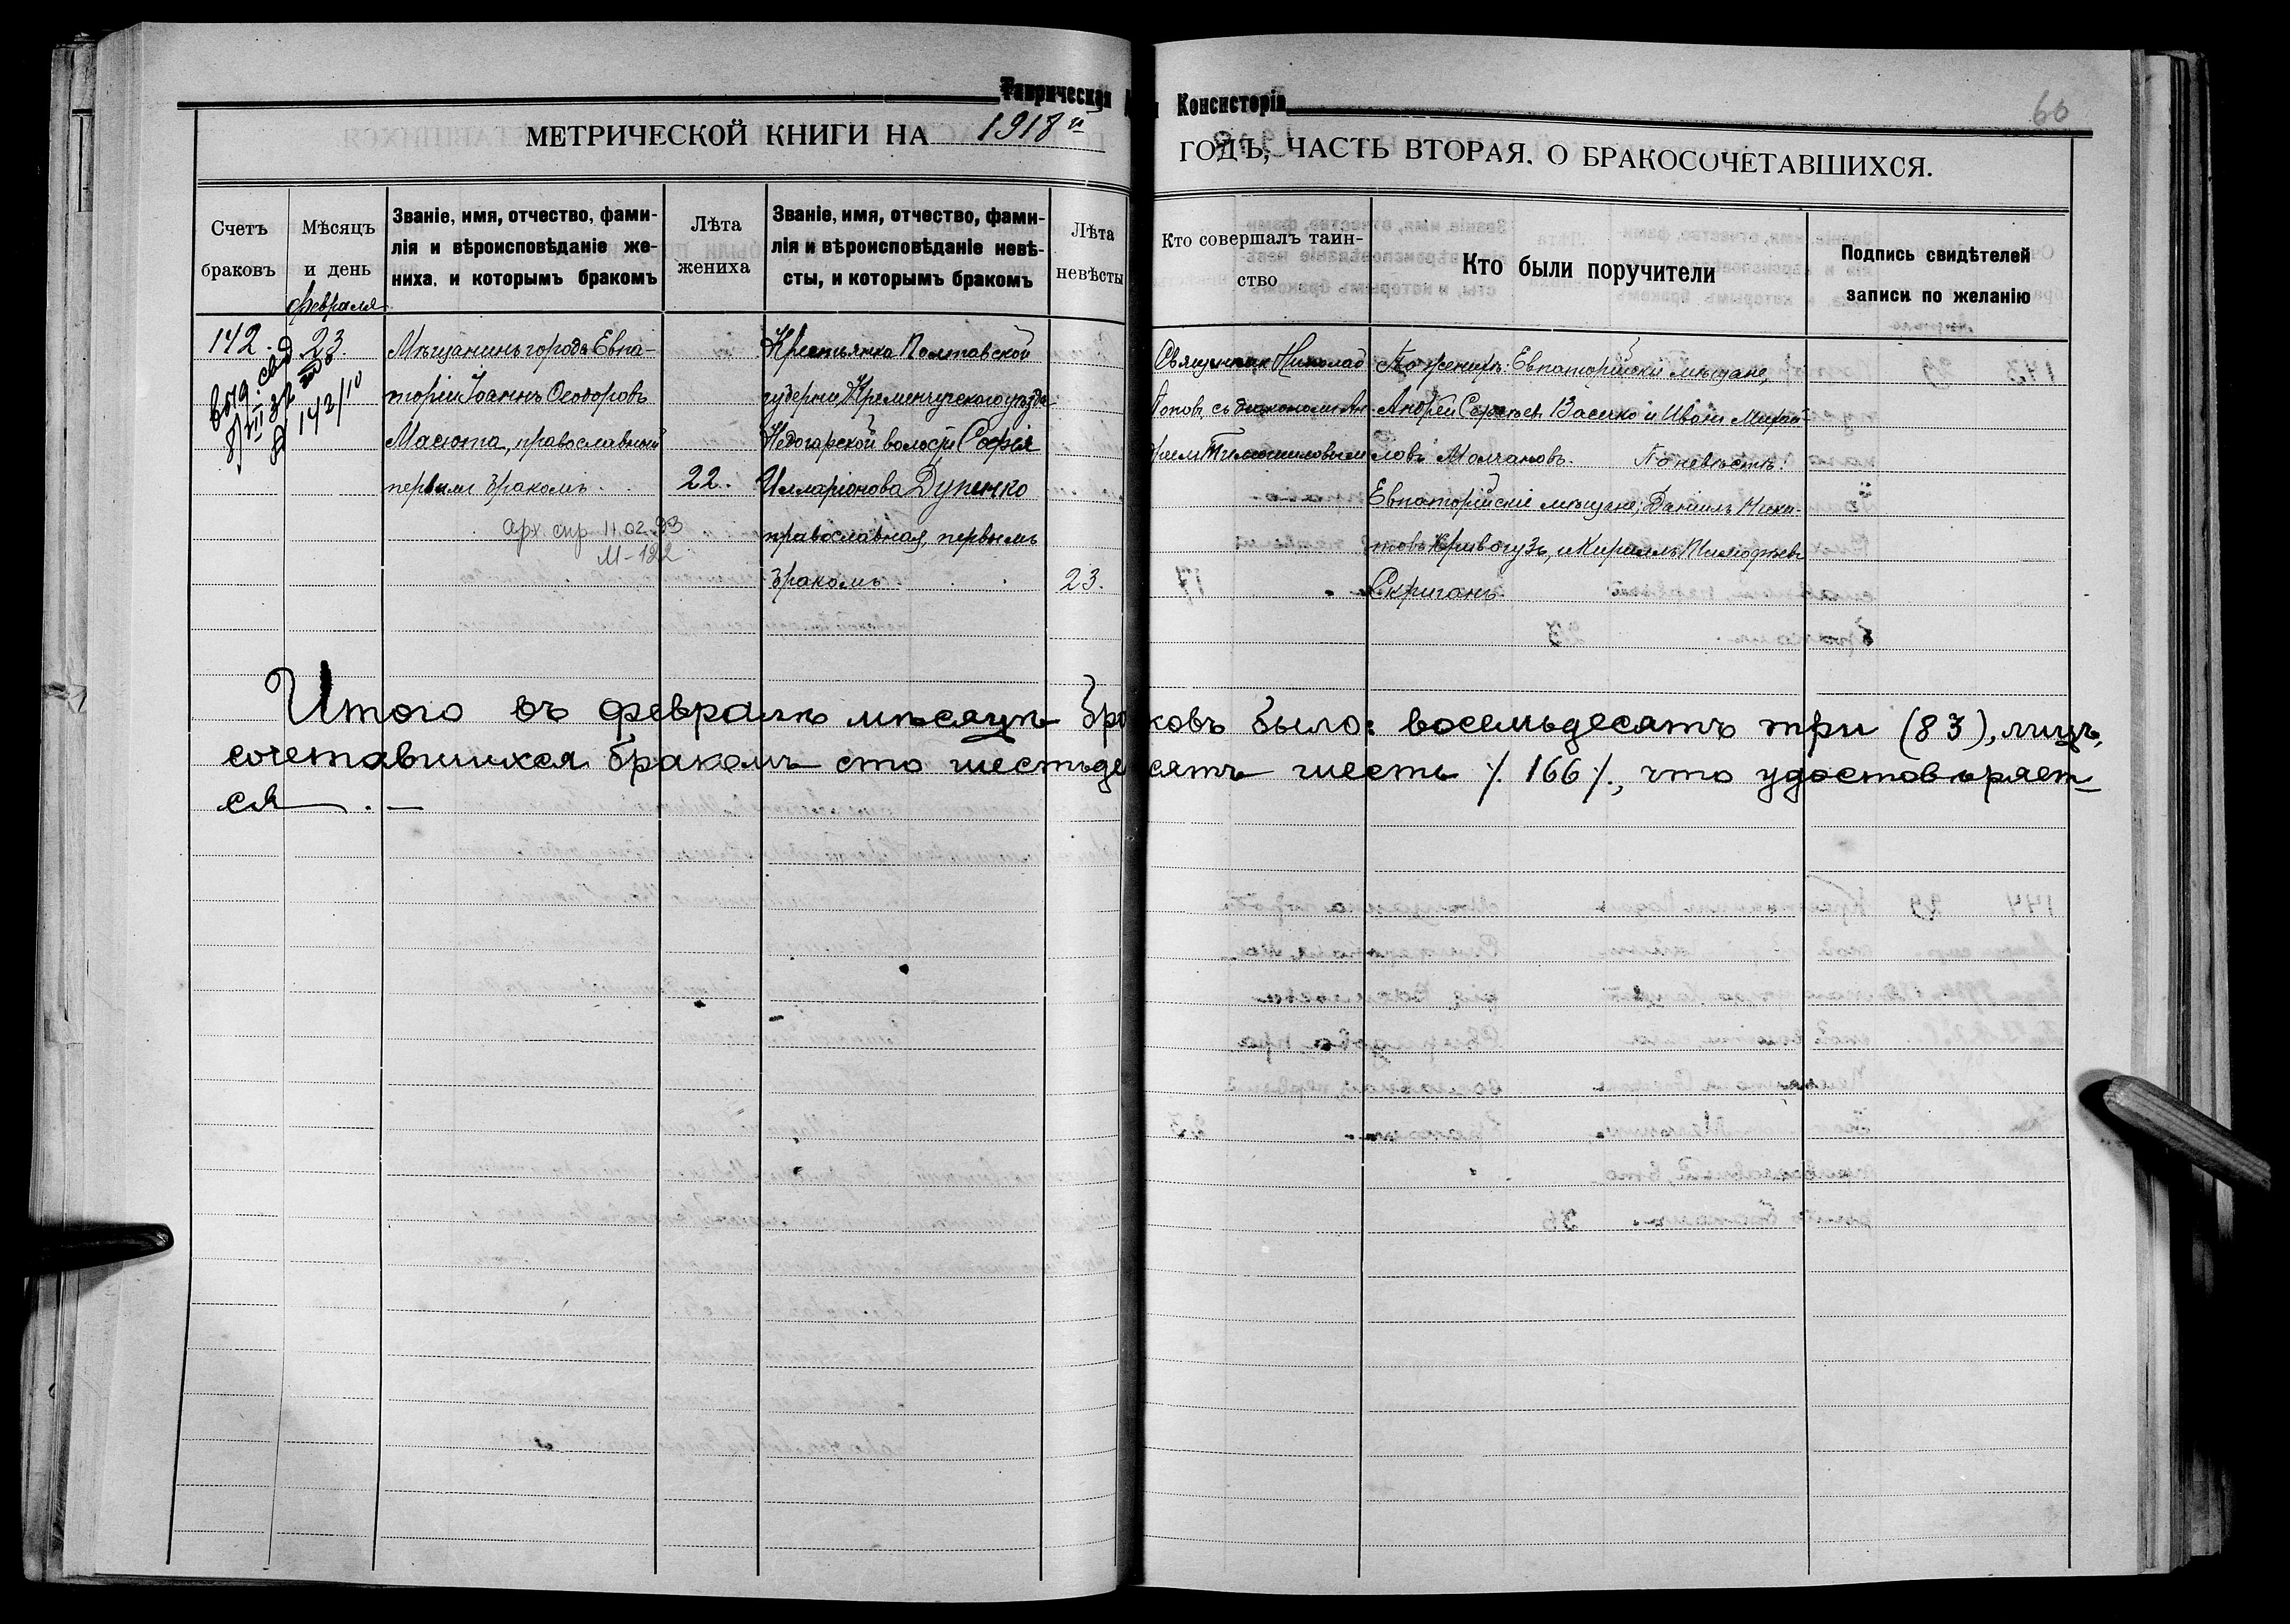 Таврическая Консисторія
60
МЕТРИЧЕСКОЙ КНИГИ НА 1918й ГОДЪ, ЧАСТЬ ВТОРАЯ. О БРАКОСОЧЕТАВШИХСЯ.
Счетъ браковъ
Мѣсяцъ и день
Званіе, имя, отчество, фами-
лія и вѣроисповѣданіе же-
ниха, и которымъ бракомъ
Лѣта жениха
Званіе, имя, отчество, фами-
лія и вѣроисповѣданіе невѣ-
сты, и которымъ бракомъ
Лѣта невѣсты
Кто совершалъ таин-
ство
Кто были поручители
Подпись свидѣтелей
записи по желанію
февраля
142.
23.
выд. свид
142/10
Мѣщанинъ города Евпа-
торіи Іоаннъ Ѳеодоровъ
Масюта, православный
первымъ бракомъ.
22.
арх. спр 11.02.93
М-182
Крестьянка Полтавской
губерніи, Кременчугскаго уѣзда
Недогарской волости Софія
Илларіонова Дуренко
православная, первымъ
бракомъ
23.
Священник Николай
Поповъ, съ діакономъ Ан-
По женихѣ: Евпаторійскіи мѣщане,
Андрей Сергѣевъ Васечко и Иванъ Михай-
ловъ Молчановъ. По невѣстѣ:
Евпаторійскіе мѣщане, Даніилъ Ники-
товъ Кривогузъ, и Кириллъ Тимофѣевъ
Скриганъ
Итого въ февралѣ мѣсяцѣ браковъ было: восемьдесятъ три (83), лицъ,
сочетавшихся бракомъ сто шестьдесятъ шесть /.166/., что удостовѣряет-
ся